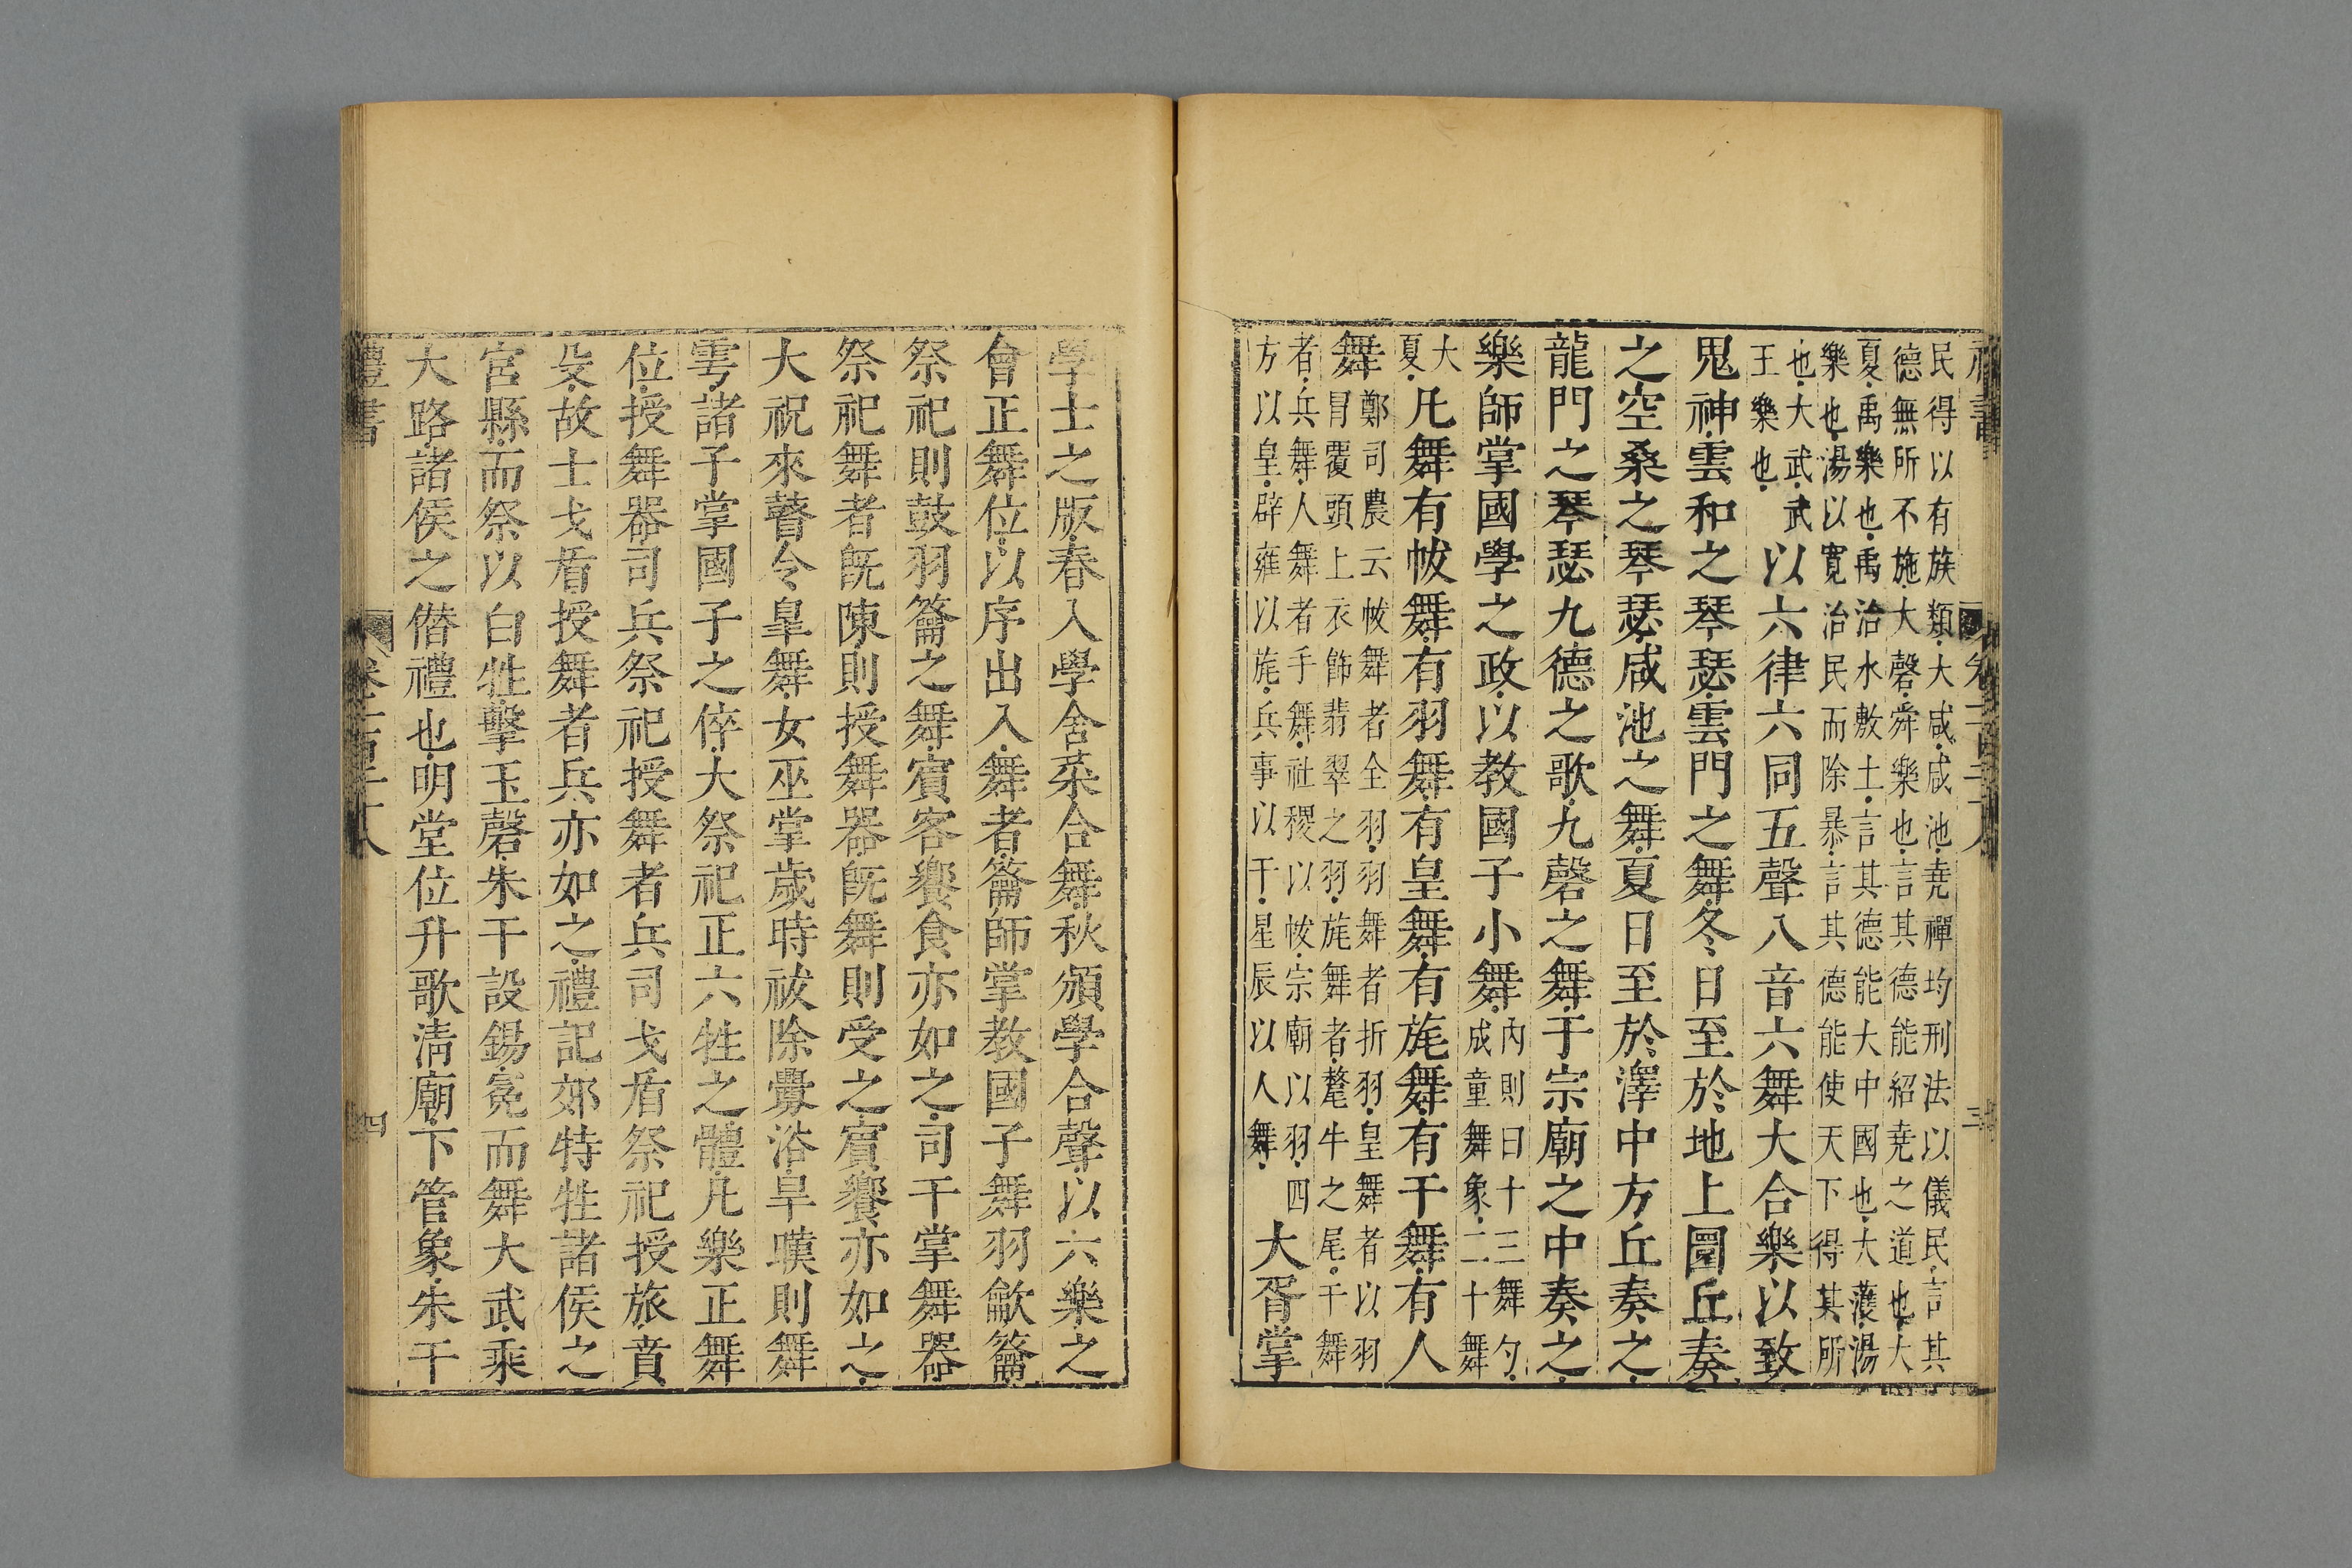 民得以有族類大咸咸池堯禪均刑法以儀民言其
德無所不施大磬舜樂也言其德能紹堯之道也大
夏禹樂也禹治水敷土言其德能大中國也大濩湯
樂也湯以寬治民而除暴言其德能使天下得其所
也大武武
王樂也
以六律六同五聲八音六舞大合樂以致
鬼神雲和之琴瑟雲門之舞冬日至於地上圜丘奏
之空桑之琴瑟咸池之舞夏日至於澤中方丘奏之
龍門之琴瑟九德之歌九磬之舞于宗廟之中奏之
樂師掌國學之政以教國子小舞
內則曰十三舞勺
成童舞象二十舞
大
夏
凡舞有帗舞有羽舞有皇舞有旄舞有干舞有人
舞
鄭司農云帗舞者全羽羽舞者折羽皇舞者以羽
冒覆頭上衣飾翡翠之羽旄舞者氂牛之尾干舞
者兵舞人舞者手舞社稷以帗宗廟以羽四
方以皇辟雍以旄兵事以干星辰以人舞
大胥掌
學士之版春入學舍菜合舞秋頒學合聲以六樂之
會正舞位以序出入舞者籥師掌教國子舞羽龡籥
祭祀則鼓羽籥之舞賓客饗食亦如之司干掌舞器
祭祀舞者旣陳則授舞器旣舞則受之賓饗亦如之
大祝來瞽令臯舞女巫掌歲時祓除釁浴旱暵則舞
雩諸子掌國子之倅大祭祀正六牲之體凡樂正舞
位授舞器司兵祭祀授舞者兵司戈盾祭祀授旅賁
殳故士戈盾授舞者兵亦如之禮記郊特牲諸侯之
宮縣而祭以白牡擊玉磬朱干設錫冕而舞大武乘
大路諸侯之僣禮也明堂位升歌淸廟下管象朱干
禮書 四